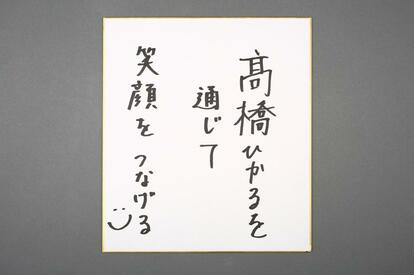 髙橋ひかるを
通じて
笑顔をつなげる